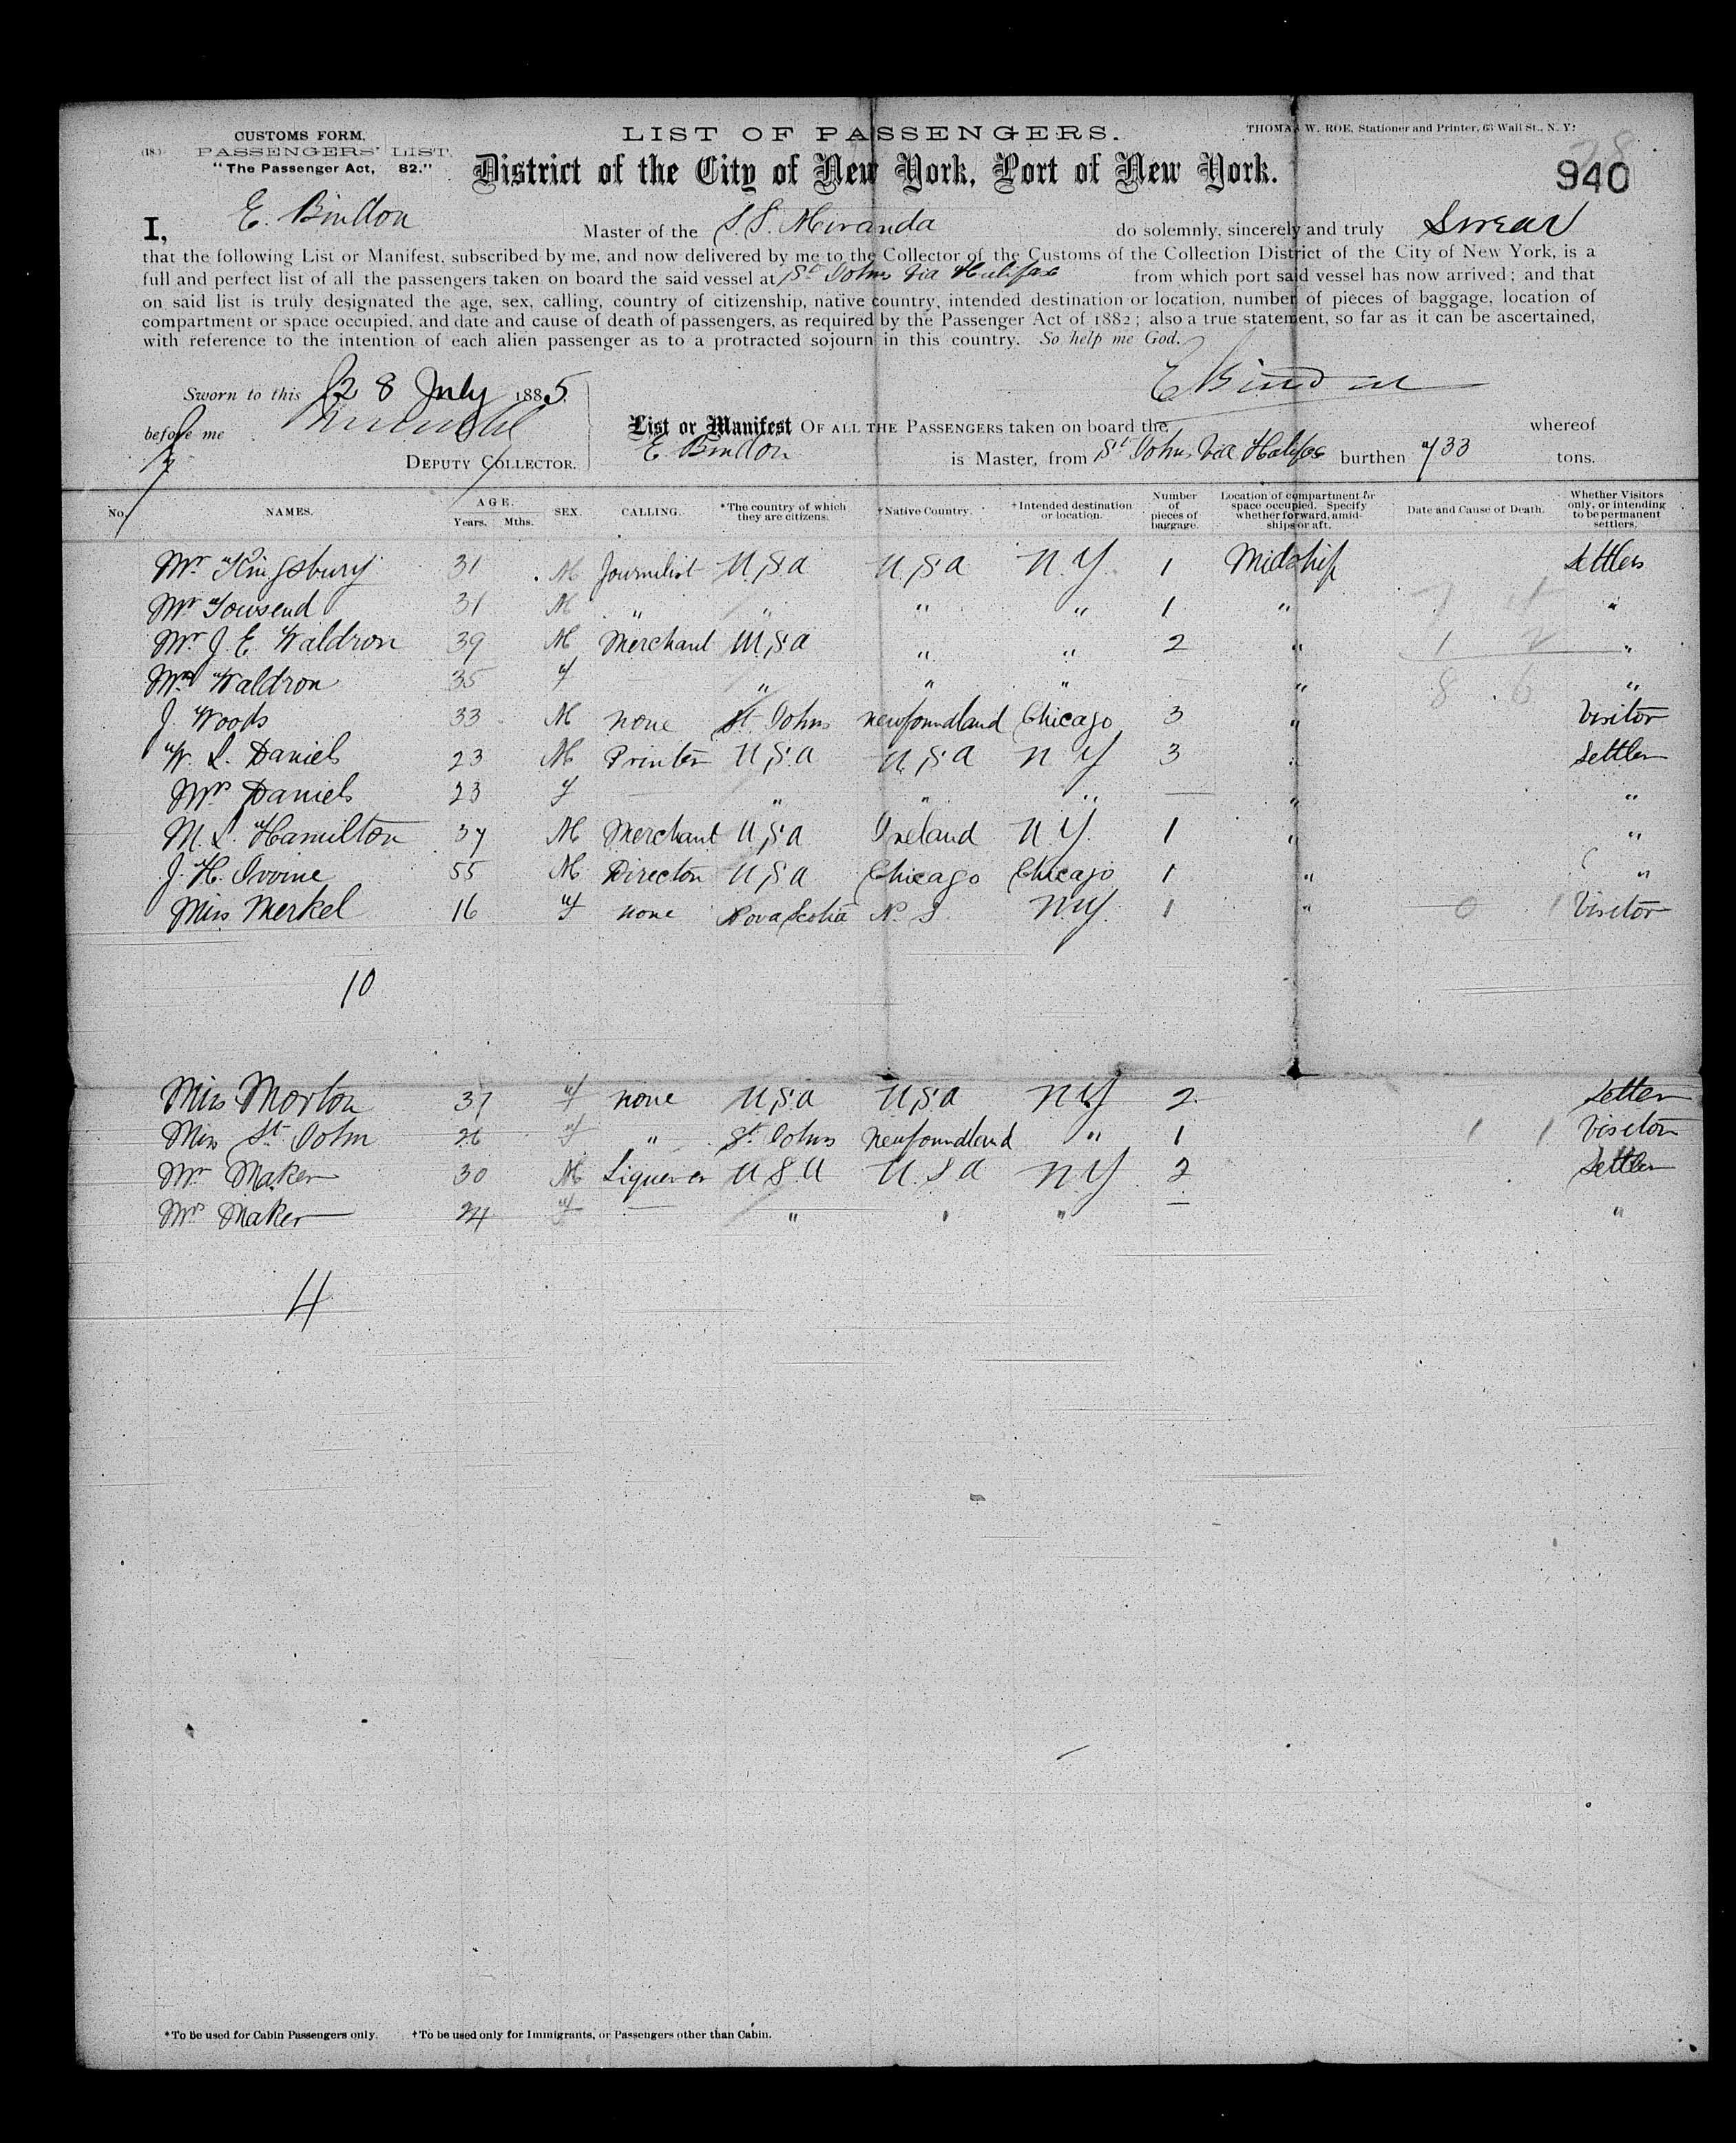 CUSTOMS FORM.
(18.) PASSENGERS' LIST.
"The Passenger Act, 82."
LIST OF PASSENGERS.
THOMAS W. ROE, Stationer and Printer, 63 Wall St., N. Y.
District of the City of New York, Port of New York.
940
I, E. Bindon Master of the S.S. Miranda do solemnly, sincerely and truly Swear
that the following List or Manifest, subscribed by me, and now delivered by me to the Collector of the Customs of the Collection District of the City of New York, is a
full and perfect list of all the passengers taken on board the said vessel at St Johns Via Halifax from which port said vessel has now arrived; and that
on said list is truly designated the age, sex, calling, country of citizenship, native country, intended destination or location, number of pieces of baggage, location of
compartment or space occupied, and date and cause of death of passengers, as required by the Passenger Act of 1882; also a true statement, so far as it can be ascertained,
with reference to the intention of each alien passenger as to a protracted sojourn in this country. So help me God.
E Bindon
Sworn to this 28 July 1885.
before me
DEPUTY COLLECTOR.
List or Manifest OF ALL THE PASSENGERS taken on board the whereof
E. Bindon is Master, from St Johns Via Halifax burthen 733 tons.
No. NAMES. AGE. Years. Mths. SEX. CALLING. *The country of which they are citizens. †Native Country. †Intended destination or location. Number of pieces of baggage. Location of compartment or space occupied. Specify whether forward, amidships or aft. Date and Cause of Death. Whether Visitors only, or intending to be permanent settlers.
Mr Kingsbury 31 M Journalist U,S,A U,S,A N.Y. 1 Midship Settlers
Mr Towsend 31 M " " " " 1 " "
Mr J. E. Waldron 39 M Merchant U,S,A " " 2 " "
Mrs Waldron 35 F — " " " — " "
J. Woods 33 M none St. Johns Newfoundland Chicago 3 " Visitor
W. L. Daniels 23 M Printer U,S,A U,S,A N Y 3 " Settler
Mrs Daniels 23 F — " " " — " "
M. L. Hamilton 37 M Merchant U,S,A Ireland N.Y. 1 " "
J. H. Irvine 55 M Director U,S,A Chicago Chicago 1 " "
Miss Merkel 16 F none Nova Scotia N. S. N.Y. 1 " Visitor
10
Miss Morton 37 F none U,S,A U,S,A N.Y 2 Settler
Miss St. John 26 F " St. Johns Newfoundland " 1 Visitor
Mr Maker 30 M U S A U. S A N Y 2 Settler
Mrs Maker 24 F — " " " — "
4
*To be used for Cabin Passengers only. †To be used only for Immigrants, or Passengers other than Cabin.